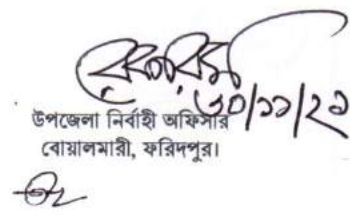 ৩০/১১/২১
উপজেলা নির্বাহী অফিসার
বোয়ালমারী, ফরিদপুর।